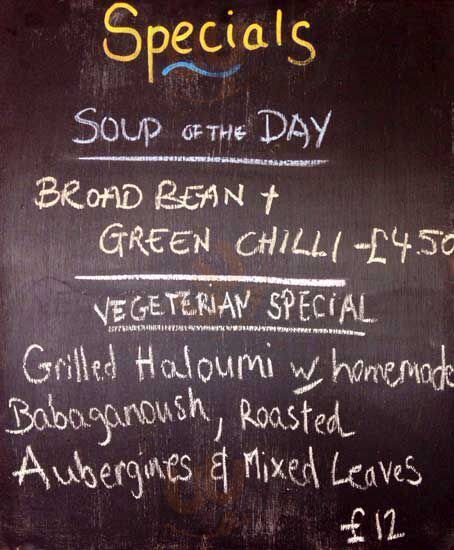 Specials
SOUP OF THE DAY
BROAD BEAN +
GREEN CHILLI -£4.50
VEGETERIAN SPECIAL
Grilled Haloumi w/ homemade
Babaganoush, Roasted
Aubergines & Mixed Leaves
£12